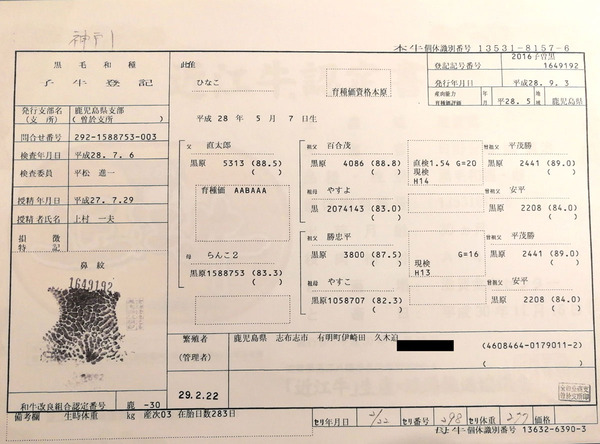 神戸
本牛個体識別番号 13531-8157-6
黒毛和種
子牛登記
此雌
ひなこ
育種価資格本原
2016子曽黒
登記記号番号 1649192
発行年月日 平成28.9.3
産肉能力育種価評価 年月 平成28.5 地域 鹿児島県
平成 28 年 5 月 7 日生
発行支部名(支所) 鹿児島県支部(曽於支所)
問合せ番号 292-1588753-003
検査年月日 平成28.7.6
検査委員 平松 進一
授精年月日 平成27.7.29
授精者氏名 上村 一夫
損徴特記
鼻紋
1649192
父 直太郎
黒原 5313 (88.5)
( )
育種価 AABAAA
母 らんこ2
黒原1588753 (83.3)
( )
祖父 百合茂
黒原 4086 (88.8)
( )
祖母 やすよ
黒 2074143 (83.0)
( )
祖父 勝忠平
黒原 3800 (87.5)
( )
祖母 やすこ
黒原1058707 (82.3)
( )
直検1.54 G=20
現検
H14
G=16
現検
H13
曽祖父 平茂勝
黒原 2441 (89.0)
( )
曽祖父 安平
黒原 2208 (84.0)
( )
曽祖父 平茂勝
黒原 2441 (89.0)
( )
曽祖父 安平
黒原 2208 (84.0)
( )
繁殖者 鹿児島県 志布志市 有明町伊崎田 久木迫
(管理者) (4608464-0179011-2)
( )
29.2.22
和牛改良組合認定番号 鹿 -30
備考欄 生時体重 kg 産次03 在胎日数283日
セリ年月日 2/22 セリ番号 298 セリ体重 277 価格
母牛個体識別番号 13632-6390-3